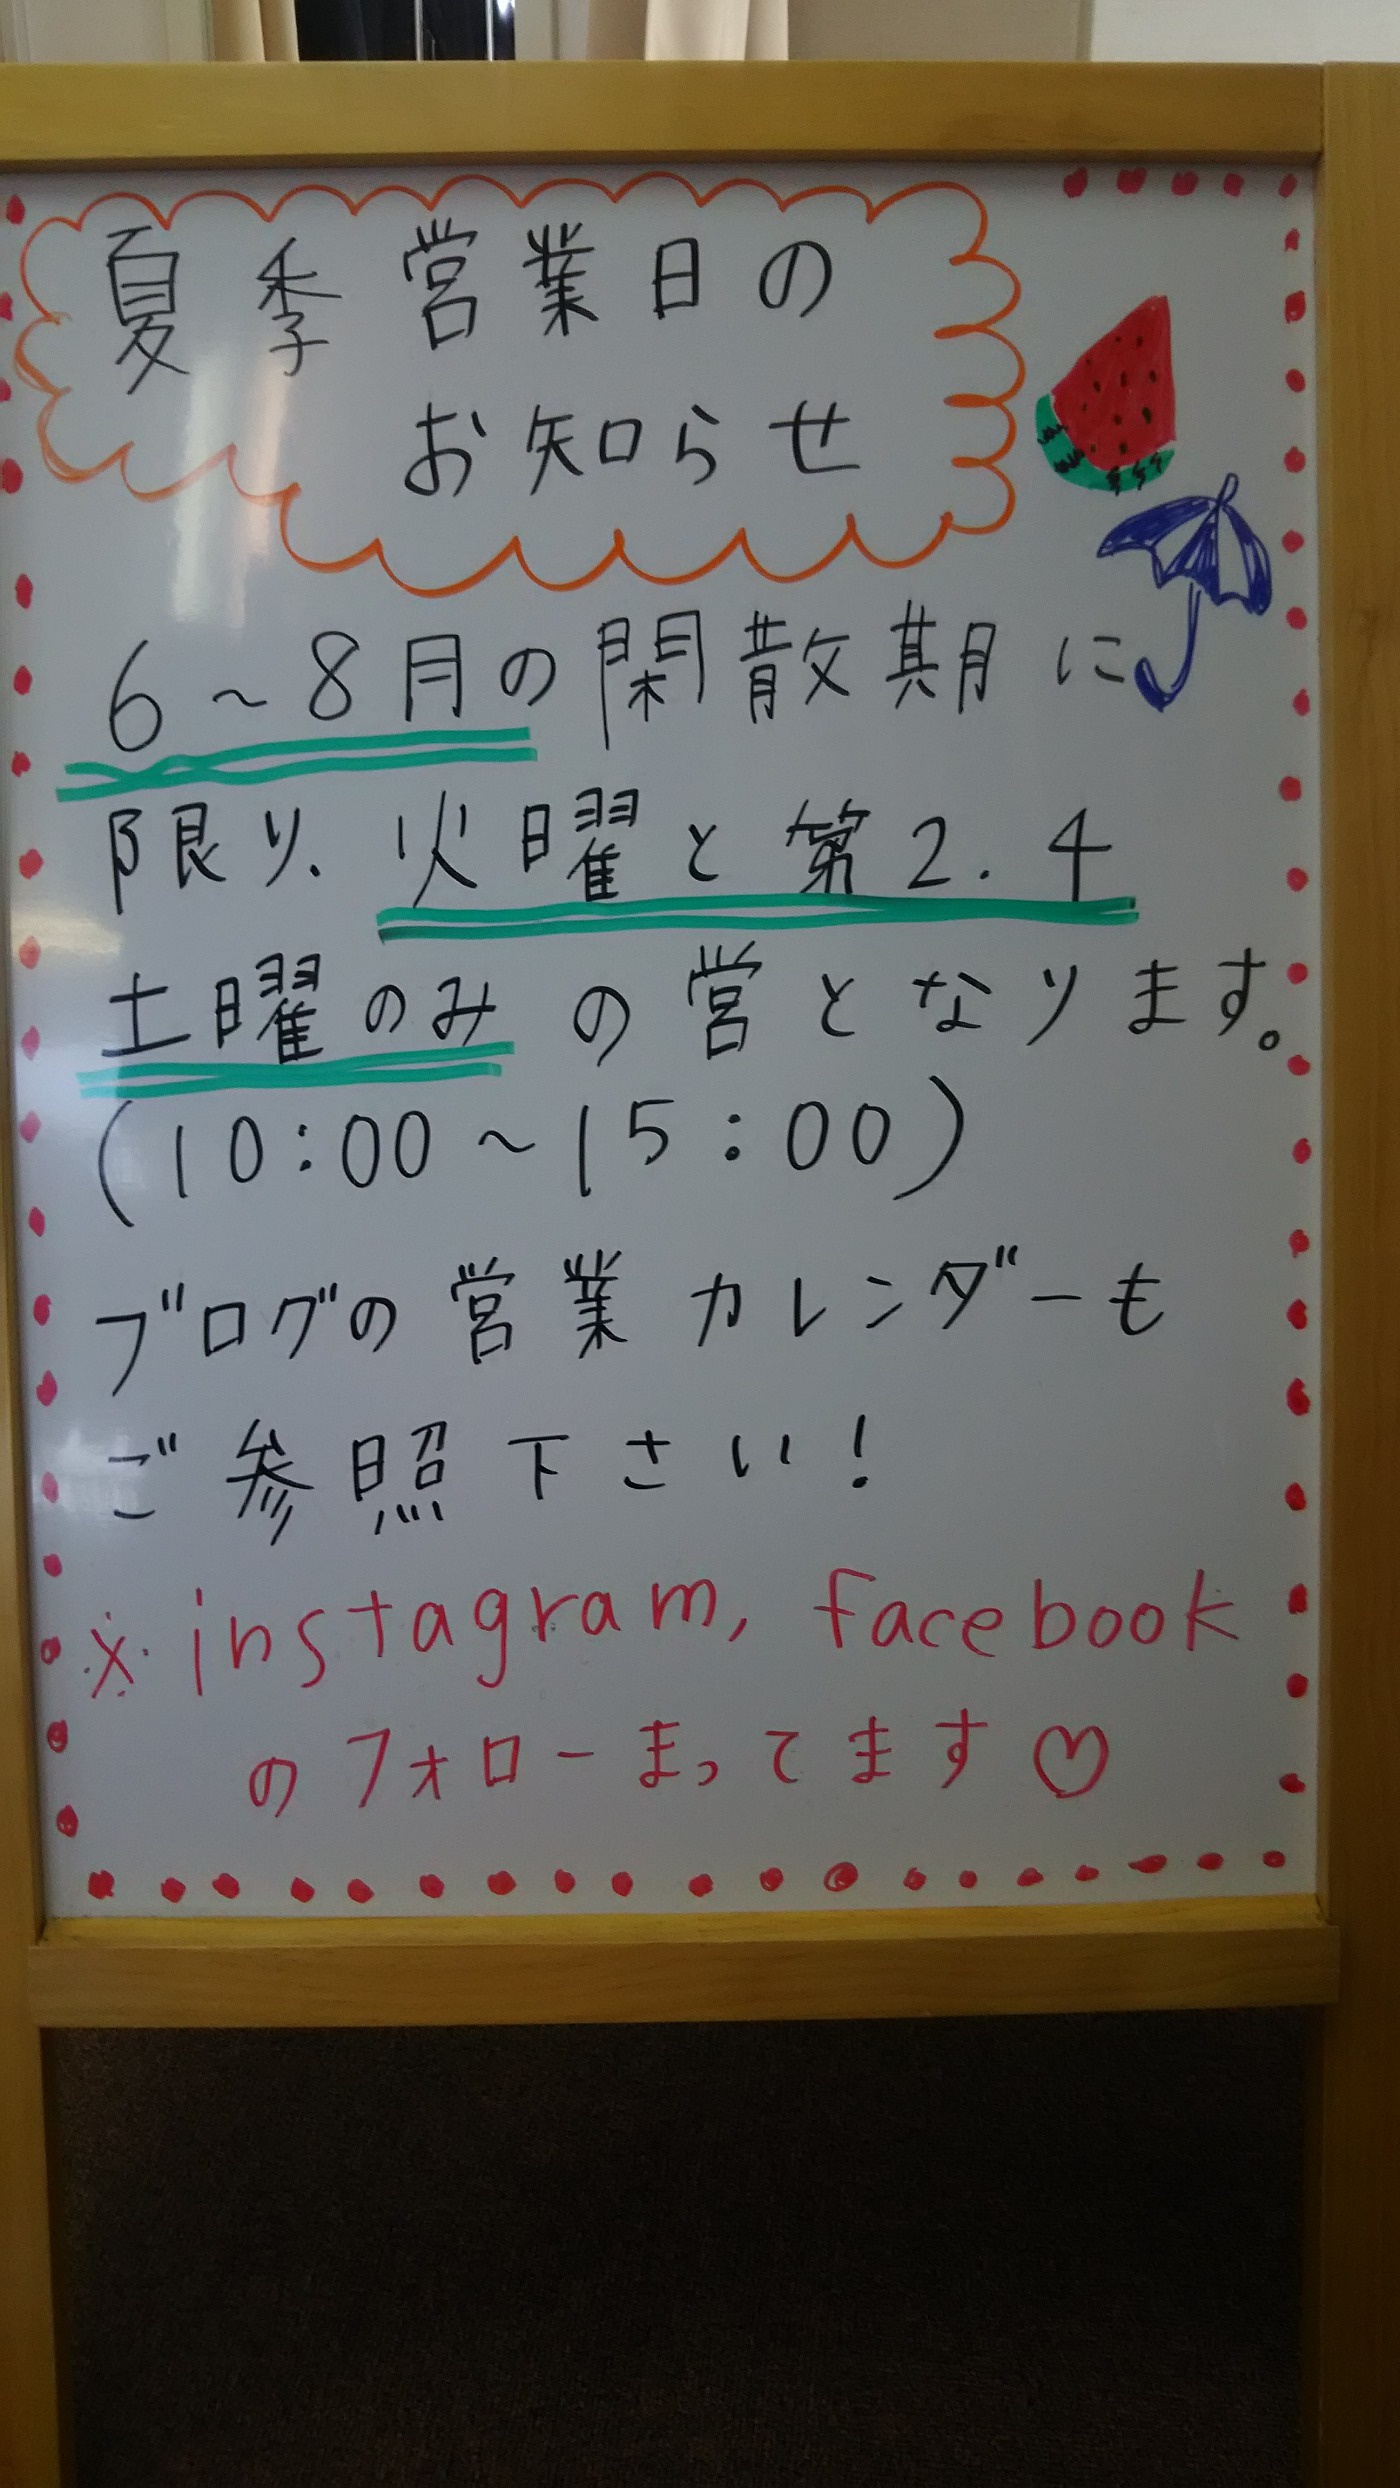 夏季営業日の
お知らせ
6～8月の閑散期に
限り、火曜と第2.4
土曜のみの営となります。
(10:00～15:00)
ブログの営業カレンダーも
ご参照下さい!
※instagram, facebook
のフォローまってます♡